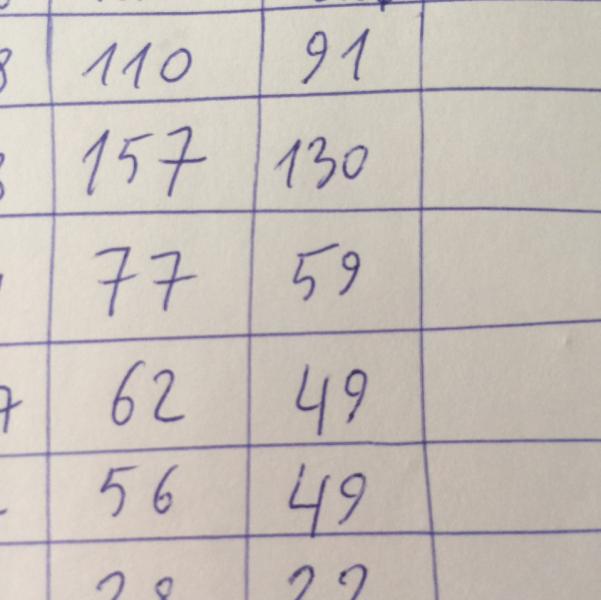 110 91
157 130
77 59
62 49
56 49